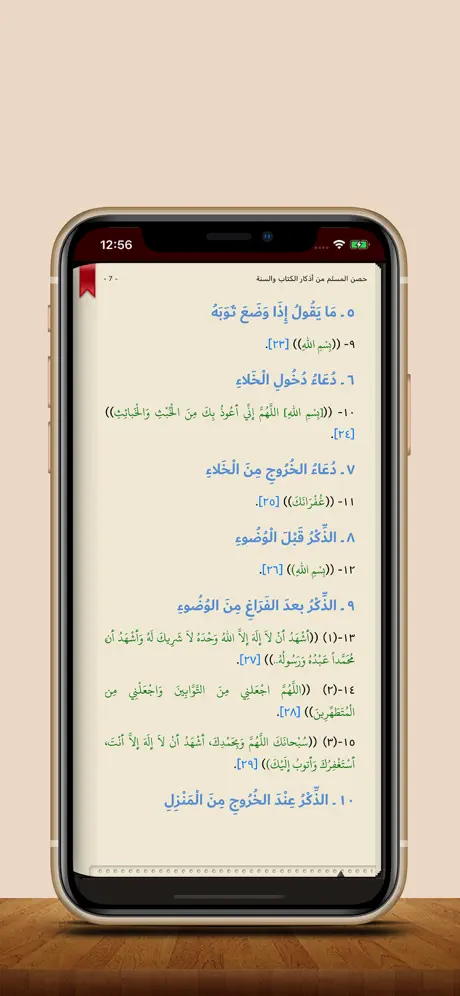 12:56
حصن المسلم من أذكار الكتاب والسنة
- 7 -
٥ ـ مَا يَقُولُ إِذَا وَضَعَ ثَوْبَهُ
٩- ((بِسْمِ اللهِ)) [٢٣].
٦ ـ دُعَاءُ دُخُولِ الْخَلاءِ
١٠- (([بِسْمِ اللهِ] اللَّهُمَّ إِنِّي أَعُوذُ بِكَ مِنَ الْخُبْثِ وَالْخَبائِثِ))
[٢٤].
٧ ـ دُعَاءُ الخُرُوجِ مِنَ الْخَلاءِ
١١- ((غُفْرَانَكَ)) [٢٥].
٨ ـ الذِّكْرُ قَبْلَ الْوُضُوءِ
١٢- ((بِسْمِ اللهِ)) [٢٦].
٩ ـ الذِّكْرُ بعدَ الفَرَاغِ مِنَ الوُضُوءِ
١٣-(١) ((أَشْهَدُ أَنْ لاَ إِلَهَ إِلاَّ اللهُ وَحْدَهُ لاَ شَرِيكَ لَهُ وَأَشْهَدُ أَن
مُحَمَّداً عَبْدُهُ وَرَسُولُهُ..)) [٢٧].
١٤-(٢) ((اللَّهُمَّ اجْعَلْنِي مِنَ التَّوَّابِينَ وَاجْعَلْنِي مِن
الْمُتَطَهِّرِينَ)) [٢٨].
١٥-(٣) ((سُبْحانَكَ اللَّهُمَّ وَبِحَمْدِكَ، أَشْهَدُ أَنْ لاَ إِلَهَ إِلاَّ أَنْتَ،
أَسْتَغْفِرُكَ وَأَتوبُ إِلَيْكَ)) [٢٩].
١٠ ـ الذِّكْرُ عِنْدَ الخُرُوجِ مِنَ الْمَنْزِلِ